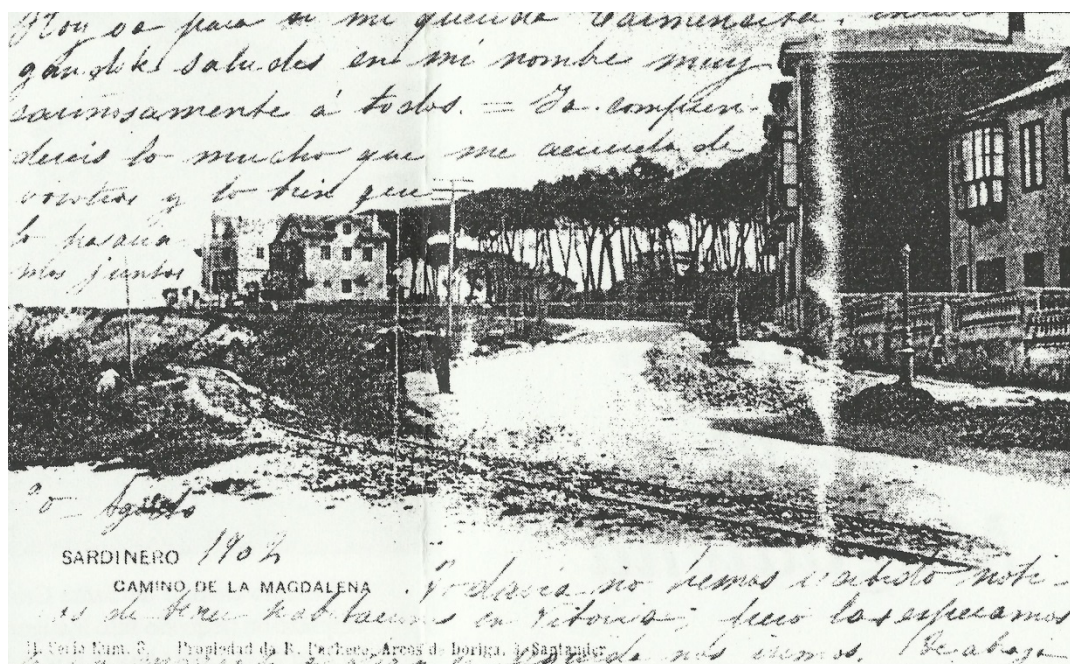 Hoy va para ti mi querida Carmencita,
saludes en mi nombre muy
cariñosamente á todos. = Ya compren-
dereis lo mucho que me acuerdo de
vosotros y lo bien que
lo pasaria-
mos juntos
Agosto
1902
SARDINERO
CAMINO DE LA MAGDALENA
Todavia no hemos recibido noti-
de tener habitaciones en Vitoria; pero las esperamos
Propiedad de R. Pacheco, Arcos de Doriga, Santander
nos iremos.